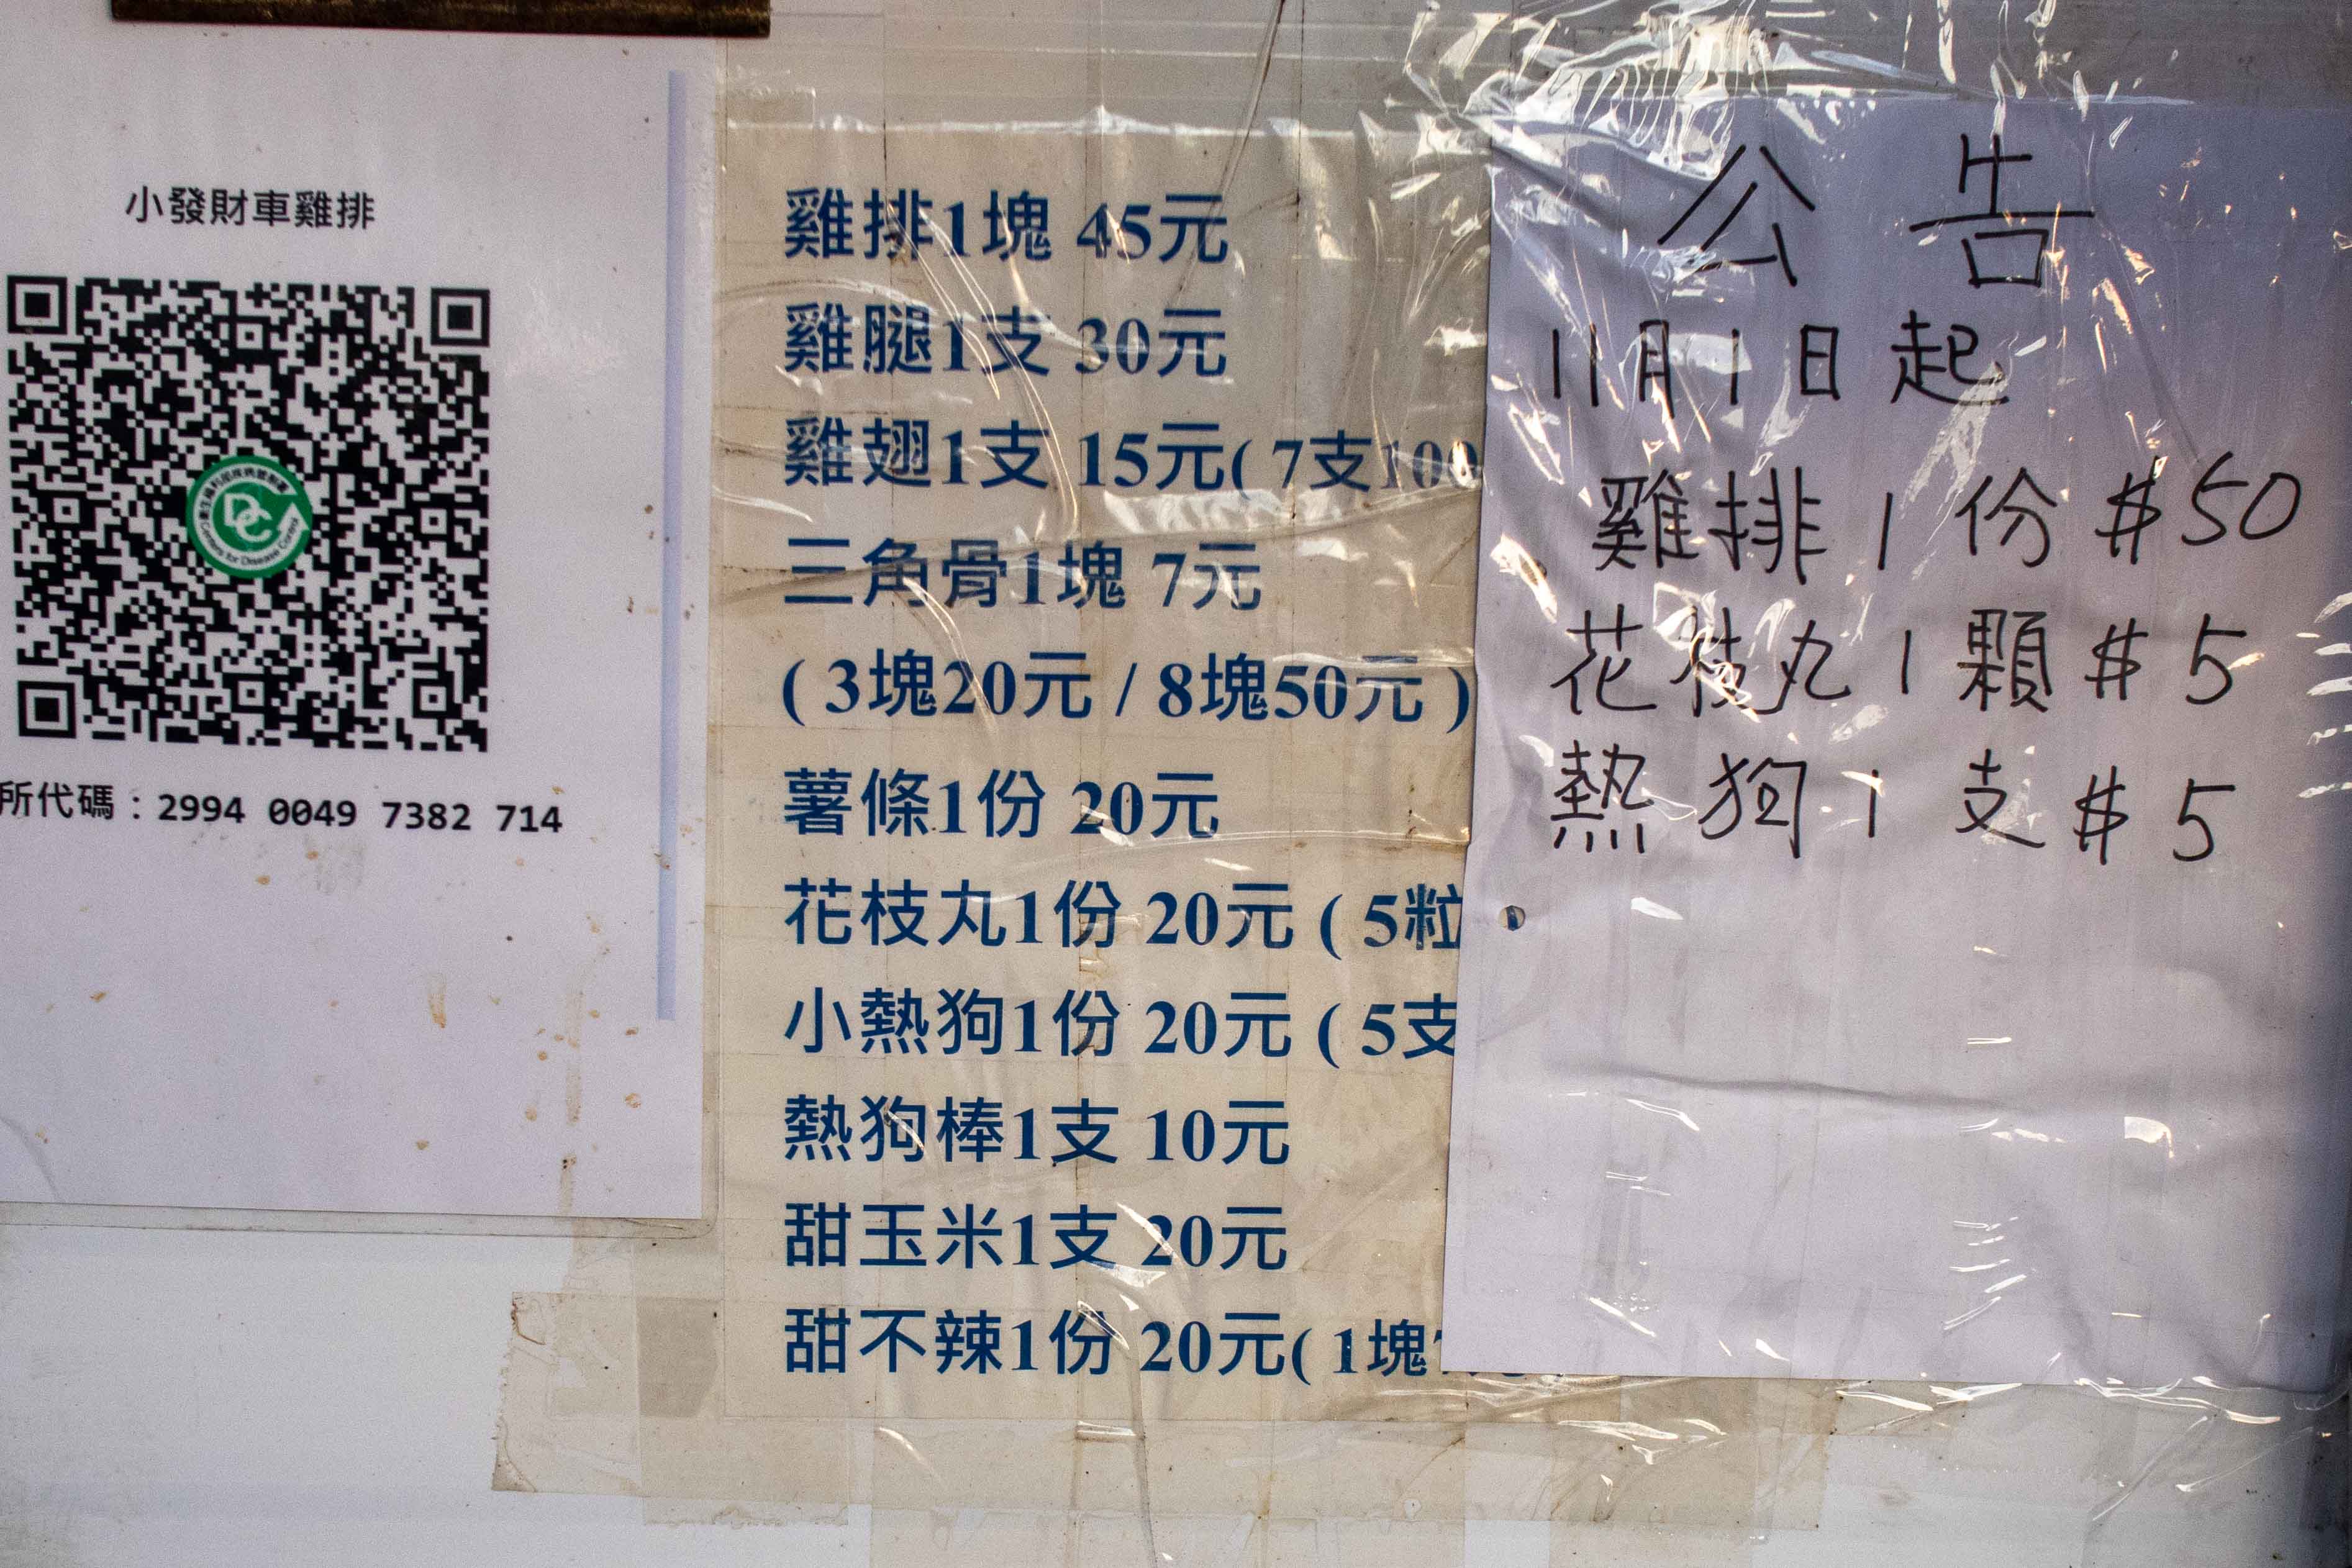 小發財車雞排
所代碼：2994 0049 7382 714
雞排1塊 45元
雞腿1支 30元
雞翅1支 15元( 7支100
三角骨1塊 7元
( 3塊20元 / 8塊50元 )
薯條1份 20元
花枝丸1份 20元 ( 5粒
小熱狗1份 20元 ( 5支
熱狗棒1支 10元
甜玉米1支 20元
甜不辣1份 20元( 1塊
公告
11月1日起
雞排1份 $50
花枝丸1顆 $5
熱狗1支 $5